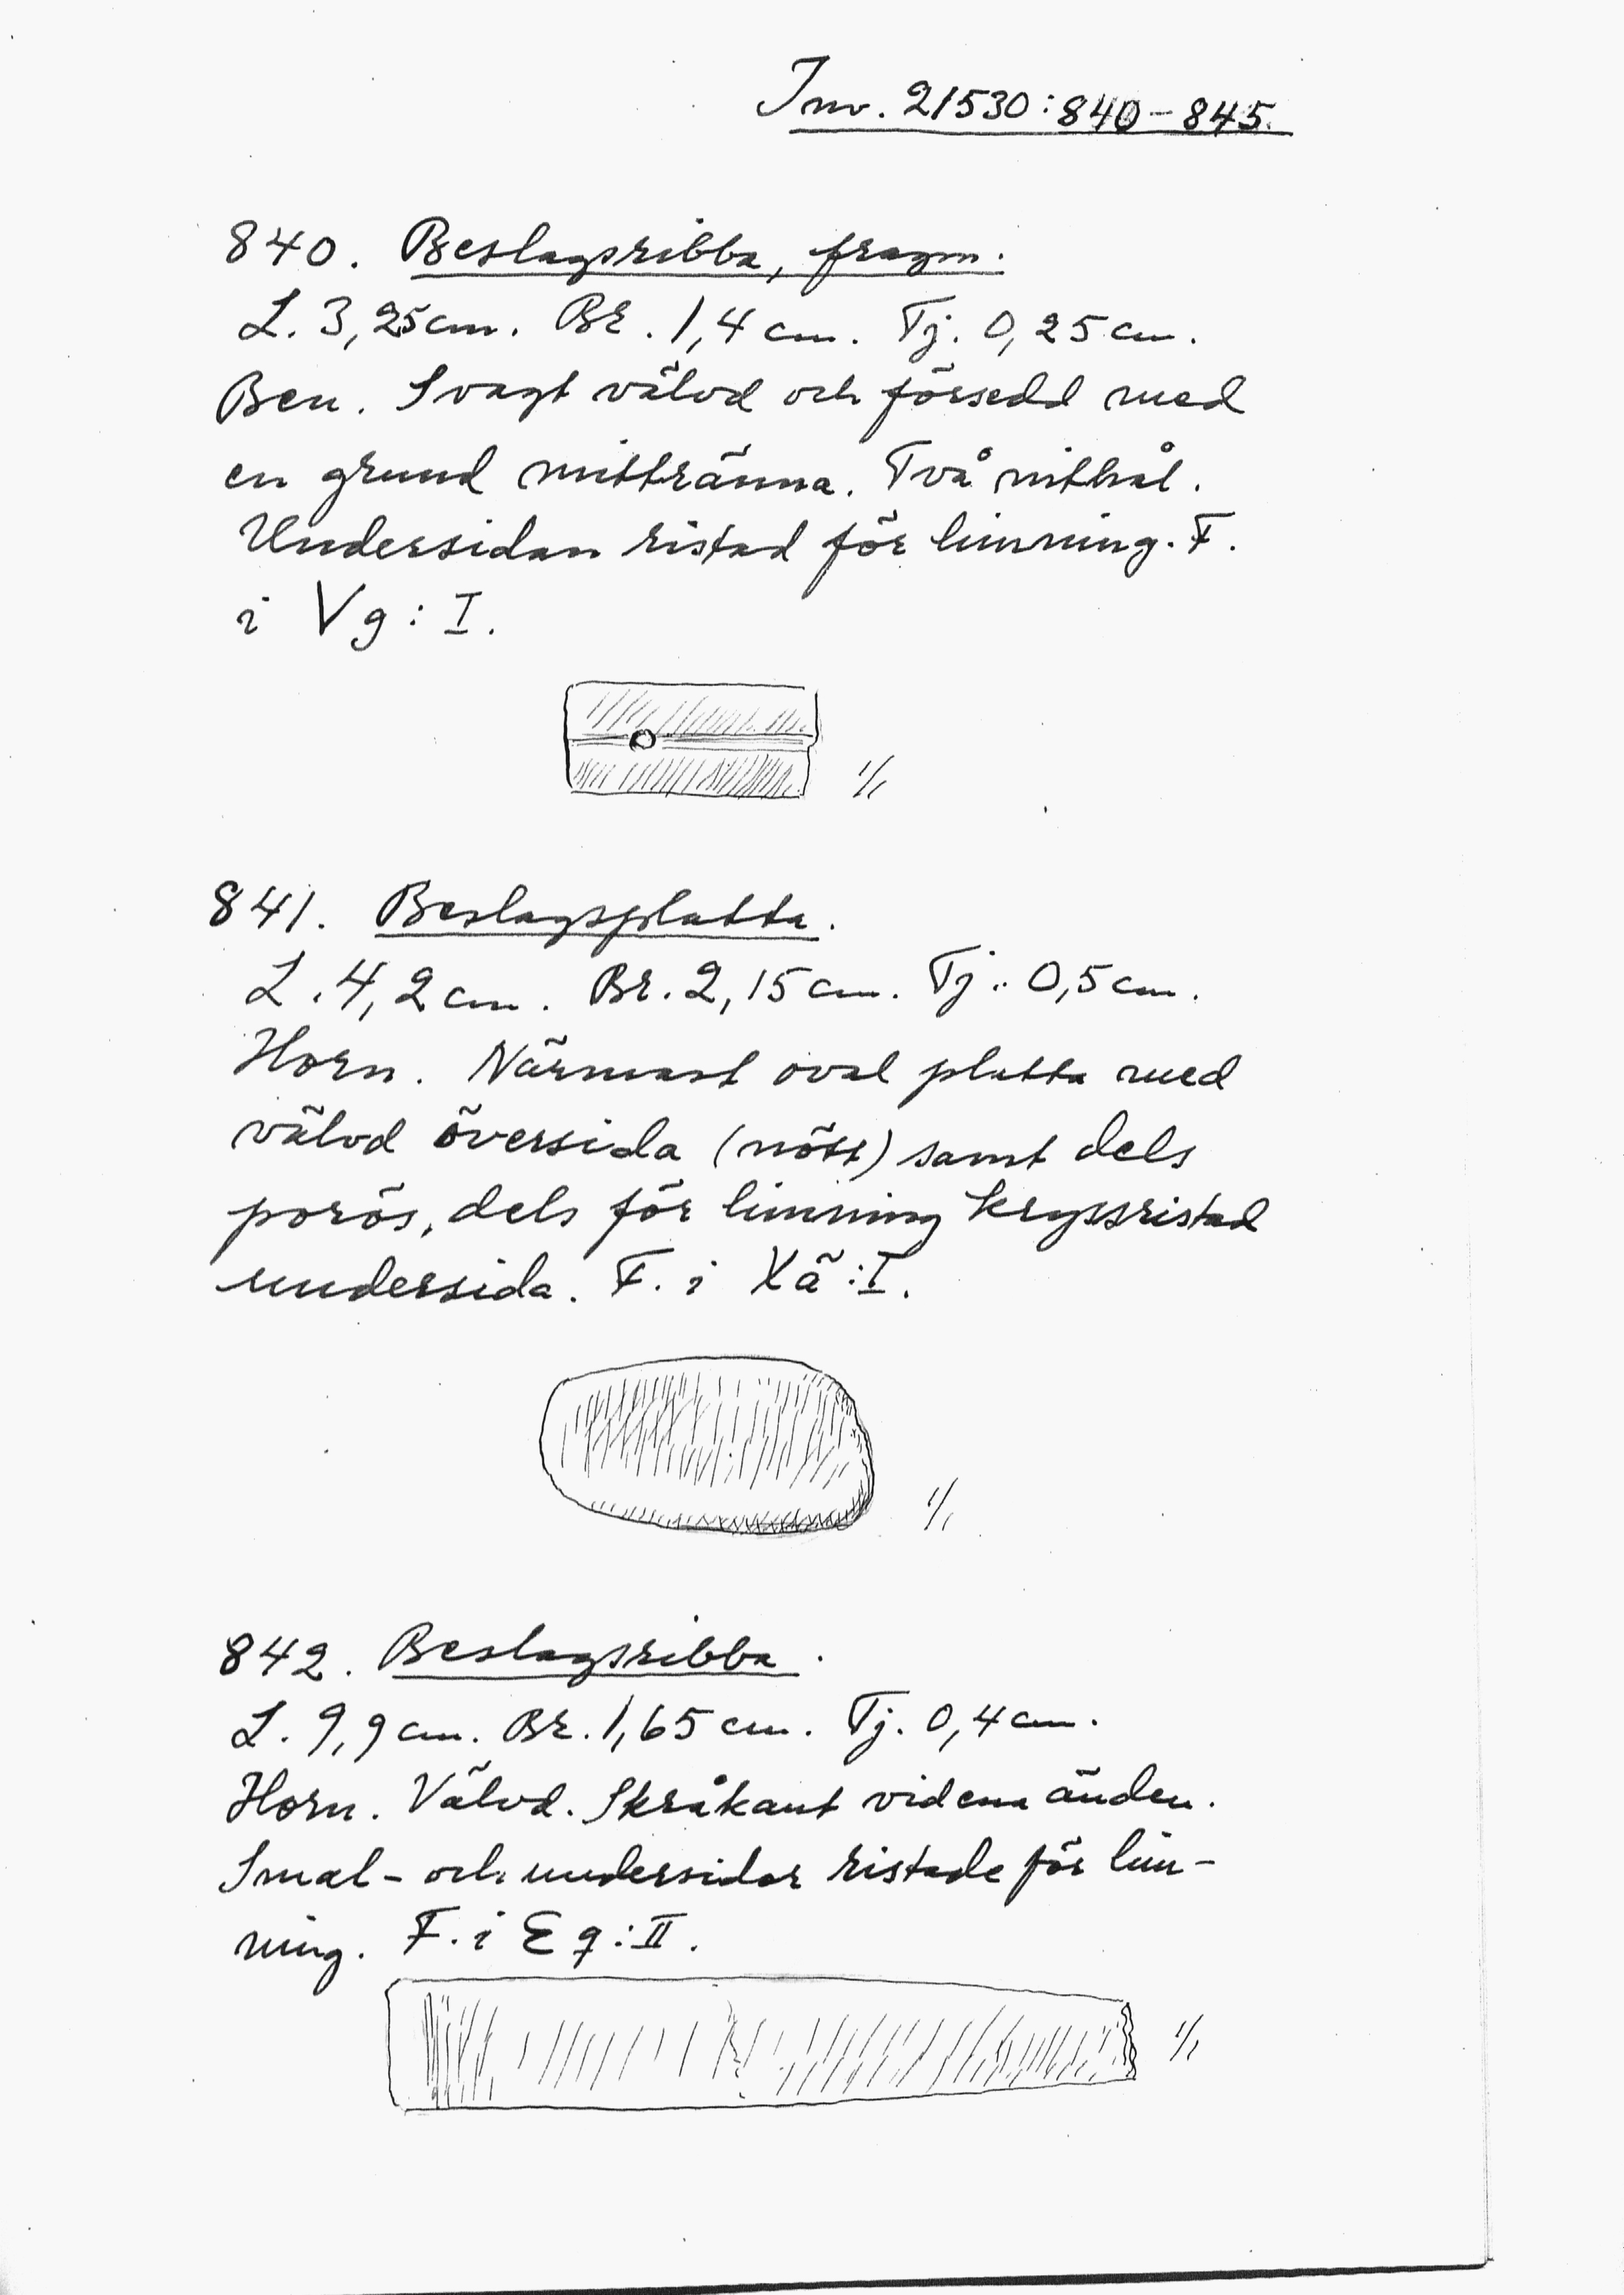 Inv. 21530:840-845.
840. Beslagsribba, fragm.
L. 3,25 cm. Br. 1,4 cm. Tj. 0,25 cm.
Ben. Svagt välvd och försedd med
en grund mittränna. Två nithål.
Undersidan ristad för limning. F.
i Vg: I.
1/1
841. Beslagsplatta.
L. 4,2 cm. Br. 2,15 cm. Tj.. 0,5 cm.
Horn. Närmast oval platta med
välvd översida (nött) samt dels
porös, dels för limning kryssristad
undersida. F. i Xä: I.
1/1
842. Beslagsribba.
L. 9,9 cm. Br. 1,65 cm. Tj. 0,4 cm.
Horn. Välvd. Skråkant vid ena änden.
Smal- och undersidor ristade för lim-
ning. F. i Eq: II.
1/1